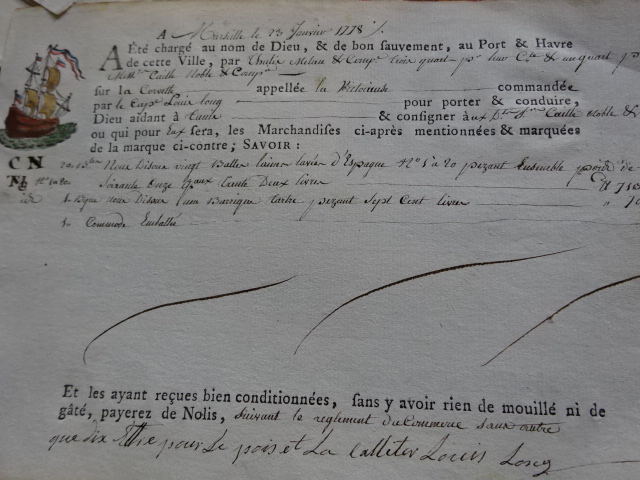 A Marseille le 23 Janvier 1778
A Été chargé au nom de Dieu, & de bon sauvement, au Port & Havre
de cette Ville, par & Comp. trois quart pr leur Cte & un quart pr
Caille Noble & Comp.
sur la Corvette appellée la Victorieuse commandée
par le Capne Louis Long pour porter & conduire,
Dieu aidant à Tunis & consigner à aux Caille Noble &
ou qui pour Eux sera, les Marchandises ci-après mentionnées & marquées
de la marque ci-contre; SAVOIR:
C N Nous Disons vingt Balles laines d'Espagne No 1 à 20 pezant Ensemble poids de
No 1 a 20 Soixante Onze qaux trente Deux livres 713
1 Bque nous Disons une Barrique tartre pezant Sept Cent livres
1 Commode Emballée
Et les ayant reçues bien conditionnées, sans y avoir rien de mouillé ni de
gâté, payerez de Nolis, suivant le reglement du Commerce sans autre
que dix Être pour Le pois et La Calleter Louis Long